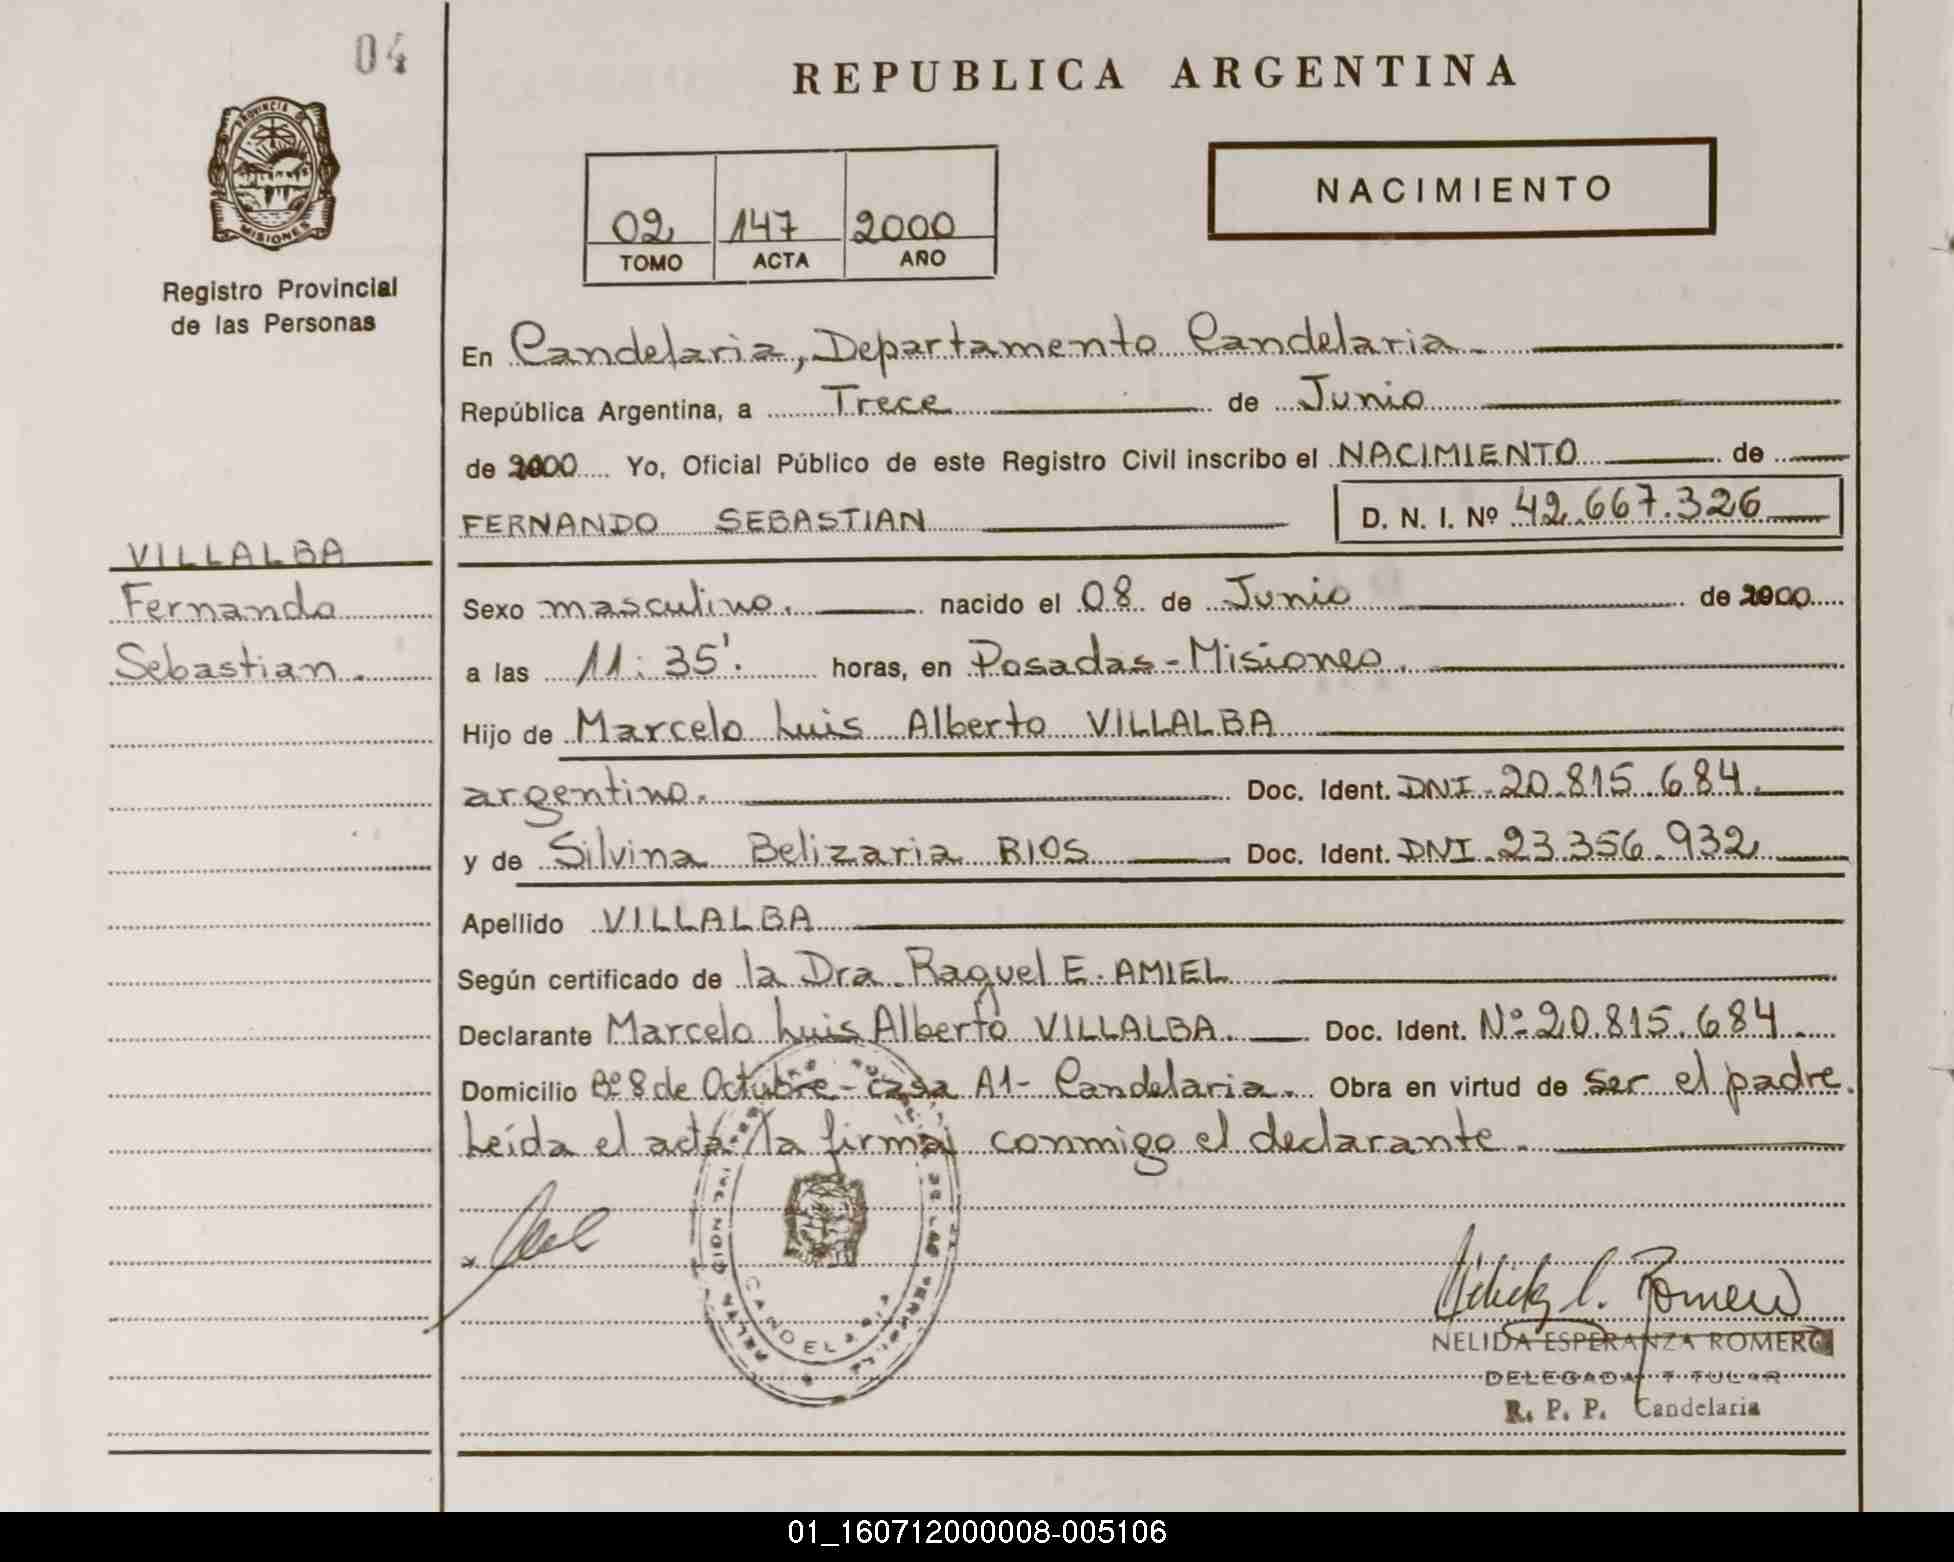 04
PROVINCIA DE
MISIONES
Registro Provincial
de las Personas
REPUBLICA ARGENTINA
02 147 2000
TOMO ACTA AÑO
NACIMIENTO
En Candelaria, Departamento Candelaria.
República Argentina, a Trece de Junio
de 2000 Yo, Oficial Público de este Registro Civil inscribo el NACIMIENTO de
FERNANDO SEBASTIAN D. N. I. Nº 42.667.326
VILLALBA
Fernando
Sebastian.
Sexo masculino. nacido el 08 de Junio de 2000
a las 11:35'. horas, en Posadas-Misiones.
Hijo de Marcelo Luis Alberto VILLALBA
argentino. Doc. Ident. DNI-20.815.684.
y de Silvina Belizaria RIOS Doc. Ident. DNI.23.356.932
Apellido VILLALBA
Según certificado de la Dra. Raquel E. AMIEL
Declarante Marcelo Luis Alberto VILLALBA. Doc. Ident. Nº 20.815.684
Domicilio Bº 8 de Octubre - casa A1- Candelaria. Obra en virtud de ser el padre.
Leída el acta la firma conmigo el declarante.
CANDELARIA
NELIDA ESPERANZA ROMERO
DELEGADA TITULAR
R. P. P. Candelaria
01_160712000008-005106